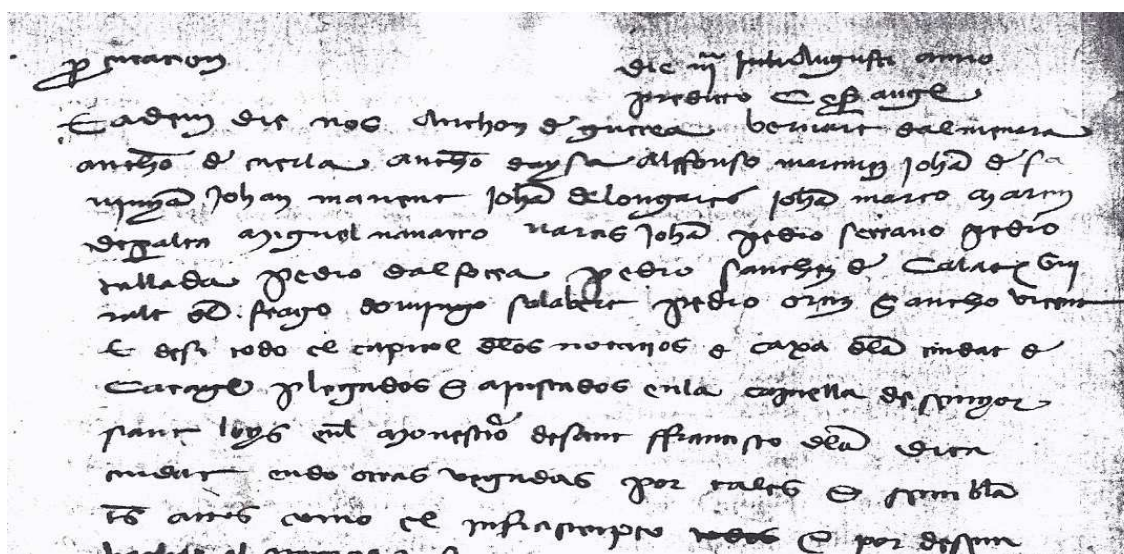 procuracion
die iii Julii Augusti anno
predicto Cesarauguste
Eadem die nos Anthon de gurrea bernart dalmenara
anthon de cuerla anthon daysa Alffonso martinez Johan de sa
vinyan Johan manent Johan de longares Johan marco Martin
de peralta Miguel navarro Narcis Johan pedro serrano pedro
tallada pedro dalfocea pedro sanchez de Calatayud
domingo salabert pedro Sancho vicent
E desi todo el capitol delos notarios de caxa dela ciudat de
Caragoça plegados e ajustados enla capiella de senyor
sant loys enel Monesterio de sant ffrancisco dela dita
ciudat endo otras vegadas por tales e sembla
tes actos como el infrascripto todos e por dessus